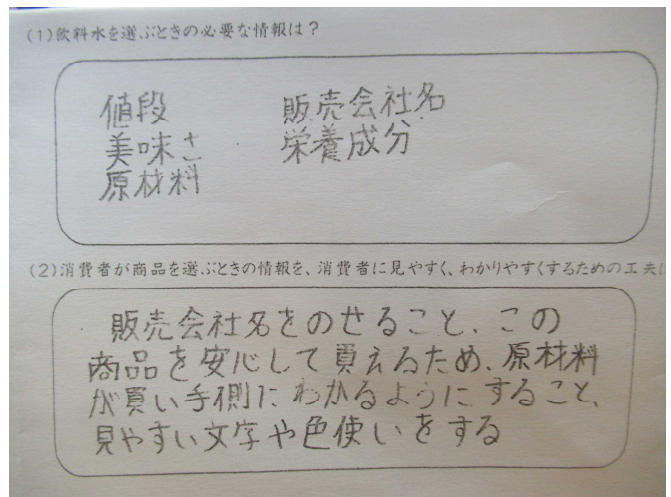 (1)飲料水を選ぶときの必要な情報は?
値段 販売会社名
美味さ 栄養成分
原材料
(2)消費者が商品を選ぶときの情報を、消費者に見やすく、わかりやすくするための工夫は
販売会社名をのせること、この
商品を安心して買えるため、原材料
が買い手側にわかるようにすること、
見やすい文字や色使いをする